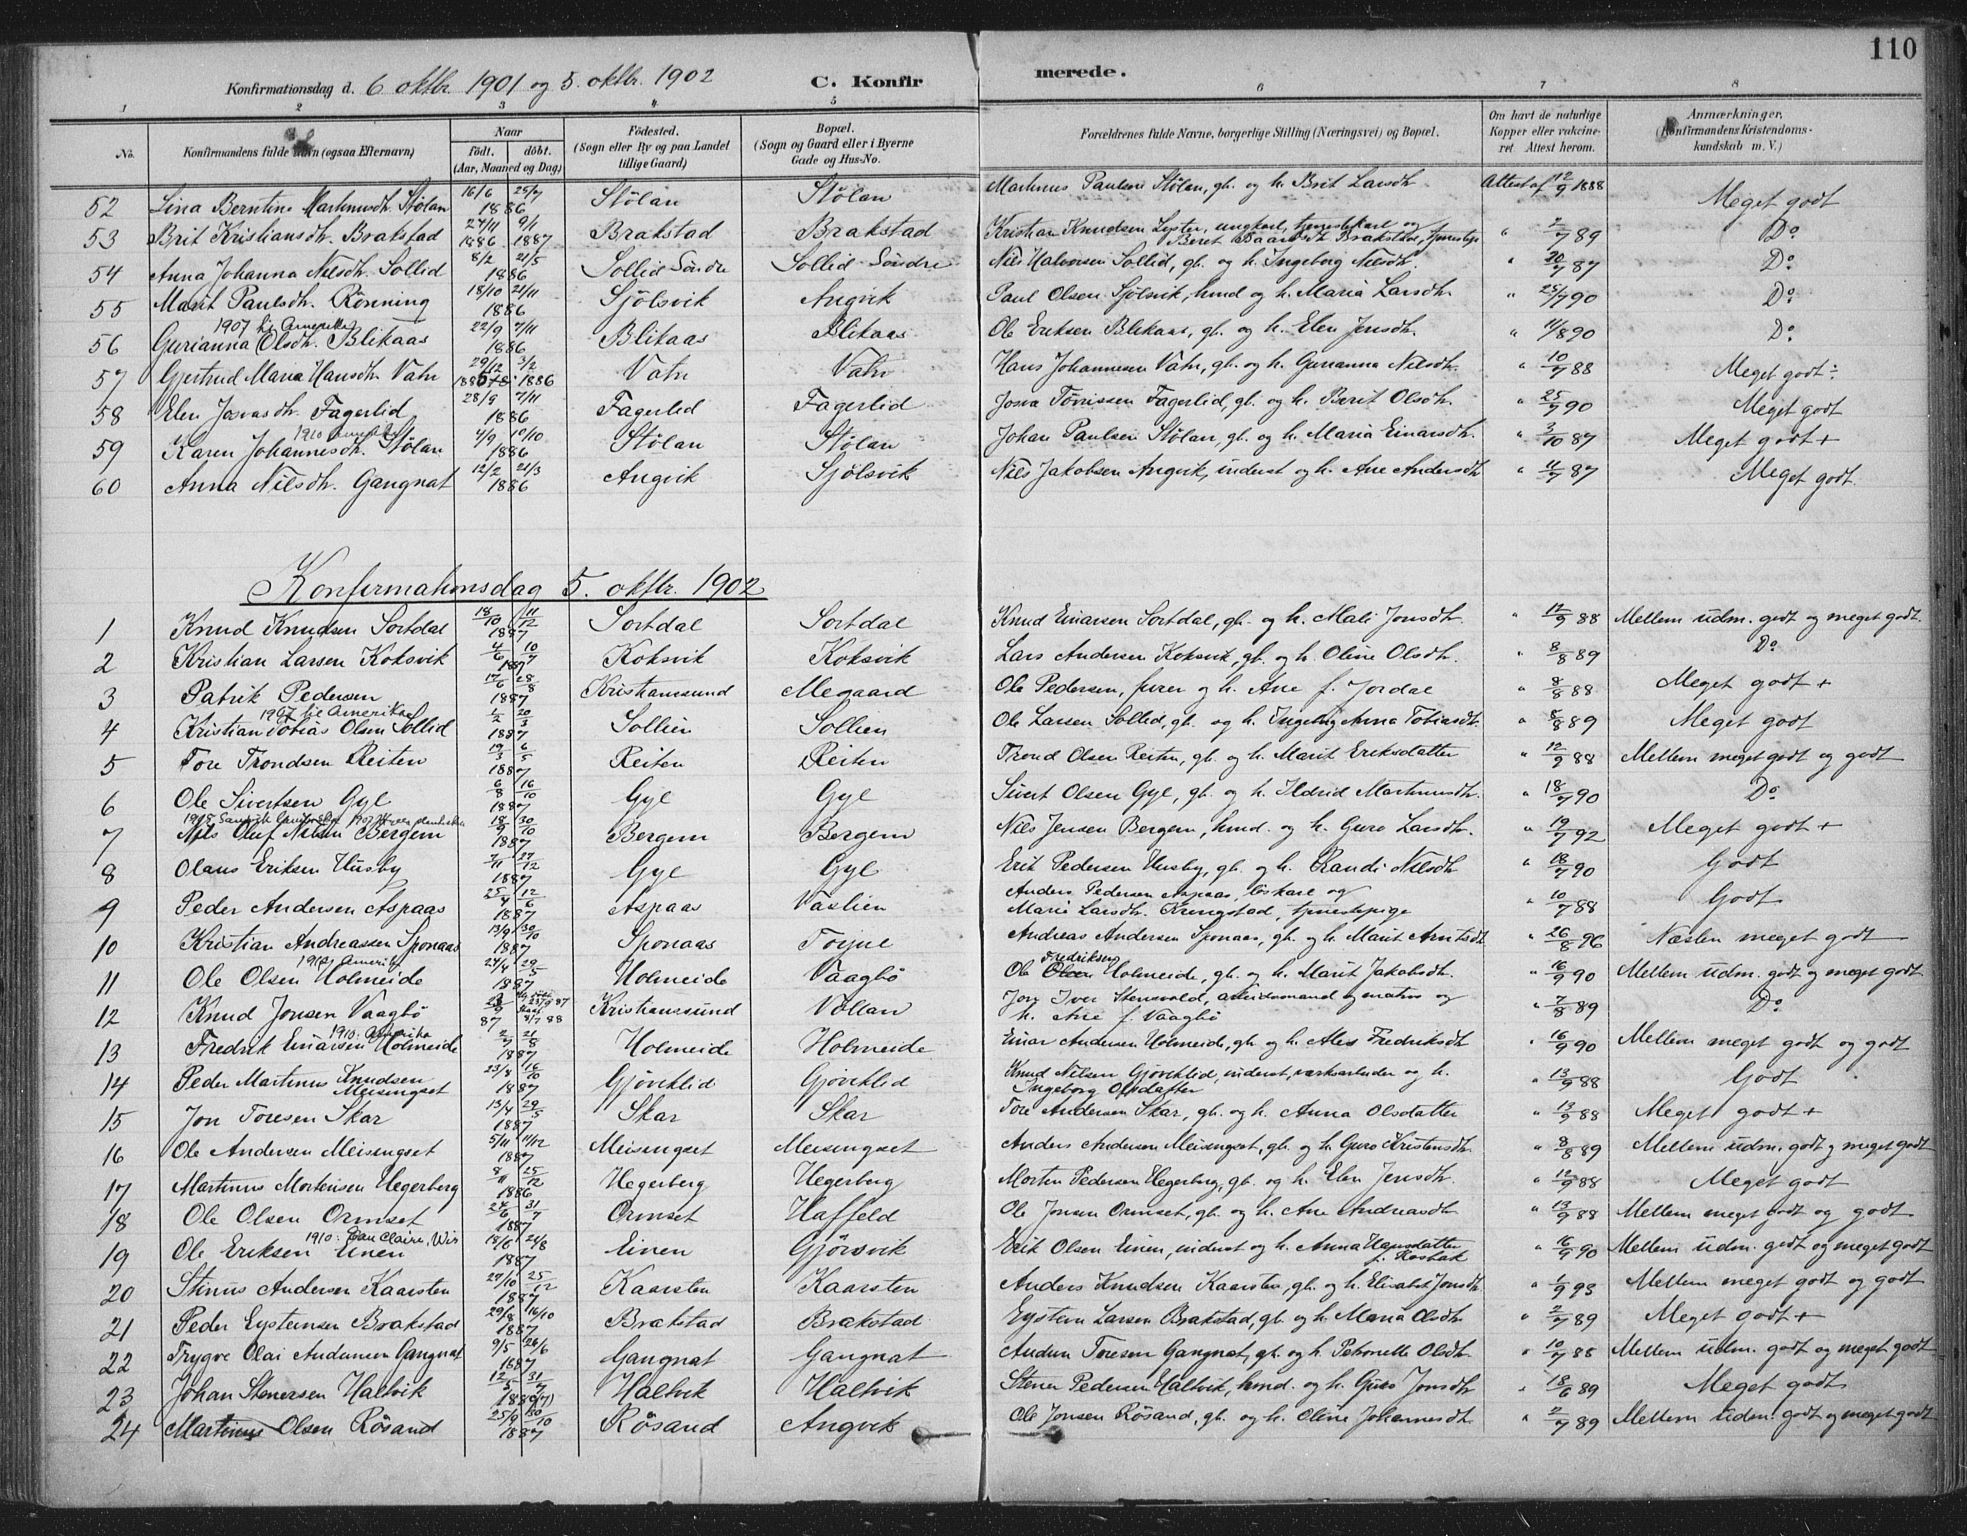 110
Konfirmationsdag d. 6 oktbr. 1901 og 5. oktbr. 1902 C. Konfirmerede.
1 2 3 4 5 6 7 8
No. Konfirmandens fulde Navn (ogsaa Efternavn) Naar födt. döbt. (Aar, Maaned og Dag) Födested. (Sogn eller By og paa Landet tillige Gaard) Bopæl. (Sogn og Gaard eller i Byerne Gade og Hus-No. Forældrenes fulde Navne, borgerlige Stilling (Næringsvei) og Bopæl. Om havt de naturlige Kopper eller vakcineret. Attest herom. Anmærkninger. (Konfirmandens Kristendomskundskab m. V.)
52 Lina Berntine Martinusdtr. Stölan 16/6 25/7 1886 Stölan Stölan Martinus Paulsen Stölan, gb. og h. Brit Larsdtr. Attest af 12/9 1888 Meget godt
53 Brit Kristiansdtr. Brakstad 24/11 1886 9/1 1887 Brakstad Brakstad Kristian Knudsen Lyster, ungkarl, tjenestekarl og Beret Baardsdtr. Brakstad, tjenestepi " 2/7 89 Do
54 Anna Johanna Nilsdtr. Sollid 8/2 21/5 1886 Sollid Söndre Sollid Söndre Nils Halvorsen Sollid, gb. og h. Ingeborg Nilsdtr. " 20/7 87 Do
55 Marit Paulsdtr. Rönning 18/10 21/11 1886 Sjölsvik Angvik Paul Olsen Sjölsvik, hmd og h. Maria Larsdtr. " 25/7 90 Do
1907 til Amerika
56 Gurianna Olsdtr. Blikaas 22/9 7/11 1886 Blikaas Blikaas Ole Eriksen Blikaas, gb. og h. Elen Jensdtr. " 11/8 90 Do
57 Gjertrud Maria Hansdtr. Vatn 29/12 1885 3/2 1886 Vatn Vatn Hans Johannesen Vatn, gb. og h. Gurianna Nilsdtr. " 10/7 88 Meget godt ÷
58 Elen Josvasdtr. Fagerlid 28/9 7/11 1886 Fagerlid Fagerlid Josva Tönnesen Fagerlid, gb. og h. Berit Olsdtr. " 25/7 90 Meget godt
1910 Amerika
59 Karen Johannesdtr. Stölan 4/9 10/10 1886 Stölan Stölan Johan Paulsen Stölan, gb. og h. Maria Einarsdtr. " 3/10 87 Meget godt +
60 Anna Nilsdtr. Gangnat 12/2 21/3 1886 Angvik Sjölsvik Nils Jakobsen Angvik, inderst og h. Ane Andersdtr " 11/7 87 Meget godt.
Konfirmationsdag 5. oktbr. 1902
1 Knud Knudsen Sortdal 18/10 11/12 1887 Sortdal Sortdal Knud Einarsen Sortdal, gb. og h. Mali Jonsdtr. " 12/9 88 Mellem udm. godt og meget godt.
2 Kristian Larsen Koksvik 4/6 10/7 1887 Koksvik Koksvik Lars Andersen Koksvik, gb. og h. Oline Olsdtr. " 8/8 89 Do
3 Patrik Pedersen 17/6 28/8 1887 Kristianssund Megaard Ole Pedersen, furer og h. Ane f. Jordal " 8/8 88 Meget godt +
1907 til Amerika
4 Kristian Tobias Olsen Sollid 1/2 20/3 1887 Sollien Sollien Ole Larsen Sollid, gb. og h. Ingeborg Anna Tobiasdtr. " 8/8 89 Meget godt
5 Tore Trondsen Reiten 19/3 6/5 1887 Reiten Reiten Trond Olsen Reiten, gb. og h. Marit Eriksdatter " 12/9 88 Mellem meget godt og godt
6 Ole Sivertsen Gyl 6/8 16/10 1887 Gyl Gyl Sivert Olsen Gyl, gb. og h. Ildrid Martinusdtr. " 18/7 90 Do
7 Nils Oluf Nilsen Bergem 18/9 30/10 1887 Bergem Bergem Nils Jensen Bergem, hmd. og h. Guro Larsdtr. " 19/7 92 Meget godt +
8 Olaus Eriksen Husby 7/11 27/12 1887 Gyl Gyl Erik Pedersen Husby, gb. og h. Randi Nilsdtr " 18/7 90 Godt
9 Peder Andersen Aspaas 25/4 12/6 1887 Aspaas Vaslien Anders Pedersen Aspaas, löskarl og Marie Larsdtr. Krengstad, tjenestepige " 10/7 88 Godt
10 Kristian Andreassen Sponaas 13/9 30/10 1887 Sponaas Töjne Andreas Andersen Sponaas, gb. og h. Marit Arntsdtr " 26/8 96 Næsten meget godt
1910 Amerika
11 Ole Olsen Holmeide 24/4 29/5 1887 Holmeide Vaagbö Ole Fredriksen Holmeide, gb. og h. Marit Jakobsdtr. " 16/9 90 Mellem udm. godt og meget godt
12 Knud Jonsen Vaagbö 87 23/9 87 8/7 88 Kristianssund Vollan Jon Iver Stensvold, arbeidsmand og matros og h. Ane f. Vaagbö " 7/8 89 Do
1910. Amerika
13 Fredrik Einarsen Holmeide 2/7 21/8 1887 Holmeide Holmeide Einar Andersen Holmeide, gb. og h. Ales Fredriksdtr " 16/9 90 Mellem meget godt og godt
14 Peder Martinus Knudsen Meisingset 23/8 16/10 1887 Gjöviklid Gjöviklid Knud Nilsen Gjöviklid, inderst, værksarbeider og h. Ingeborg Olsdatter " 13/9 88 Godt
15 Jon Toresen Skar 13/4 29/5 1887 Skar Skar Tore Andersen Skar, gb. og h. Anna Olsdatter " 13/9 88 Meget godt +
16 Ole Andersen Meisingset 5/11 11/12 1887 Meisingset Meisingset Anders Andersen Meisingset, gb. og h. Guro Kristensdtr. " 8/8 89 Mellem udm. godt og meget godt
17 Martinus Mortensen Hegerberg 8/11 25/12 1886 Hegerberg Hegerberg Morten Pedersen Hegerberg, gb. og h. Elen Jensdtr. " 12/9 88 Meget godt
18 Ole Olsen Ormset 24/6 31/7 1887 Ormset Haffeld Ole Jonsen Ormset, gb. og h. Ane Andreasdtr " 13/9 88 Mellem meget godt og godt
1910: Eau Claire, Wis
19 Ole Eriksen Einen 18/6 21/8 1887 Einen Gjörsvik Erik Olsen Einen, inderst og h. Anna Hansdatter f. Rostak " 16/9 90 Mellem udm. godt og meget godt
20 Stinus Andersen Kaarsten 29/10 25/12 1887 Kaarsten Kaarsten Anders Knudsen Kaarsten, gb. og h. Elisabet Jonsdtr " 1/9 93 Mellem meget godt og godt
21 Peder Eysteinsen Brakstad 29/8 16/10 1887 Brakstad Brakstad Eystein Larsen Brakstad, gb. og h. Maria Olsdtr. " 2/7 89 Meget godt +
22 Trygve Olai Andersen Gangnat 9/5 26/6 1887 Gangnat Gangnat Anders Toresen Gangnat, gb. og h. Petronelle Olsdtr. " 10/7 88 Mellem udm. godt og meget godt
23 Johan Stenersen Halvik 12/5 31/7 Halvik Halvik Stener Pedersen Halvik, hmd. og h. Guro Jonsdtr " 18/6 89 Meget godt
24 Martinus Olsen Rösand 25/9 30/10 1887 Rösand Angvik Ole Jonsen Rösand, gb. og h. Oline Johannesdtr. " 2/7 89 Mellem udm. godt og meget godt